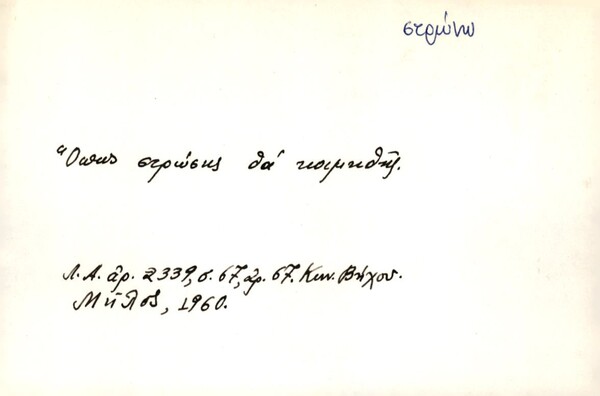 στρώνω
Ὅπως στρώσῃς θά κοιμηθῇς.
Λ.Α. ἀρ. 2339, σ. 67, ἀρ. 67. Κων. Βήχου.
Μῆλος, 1960.